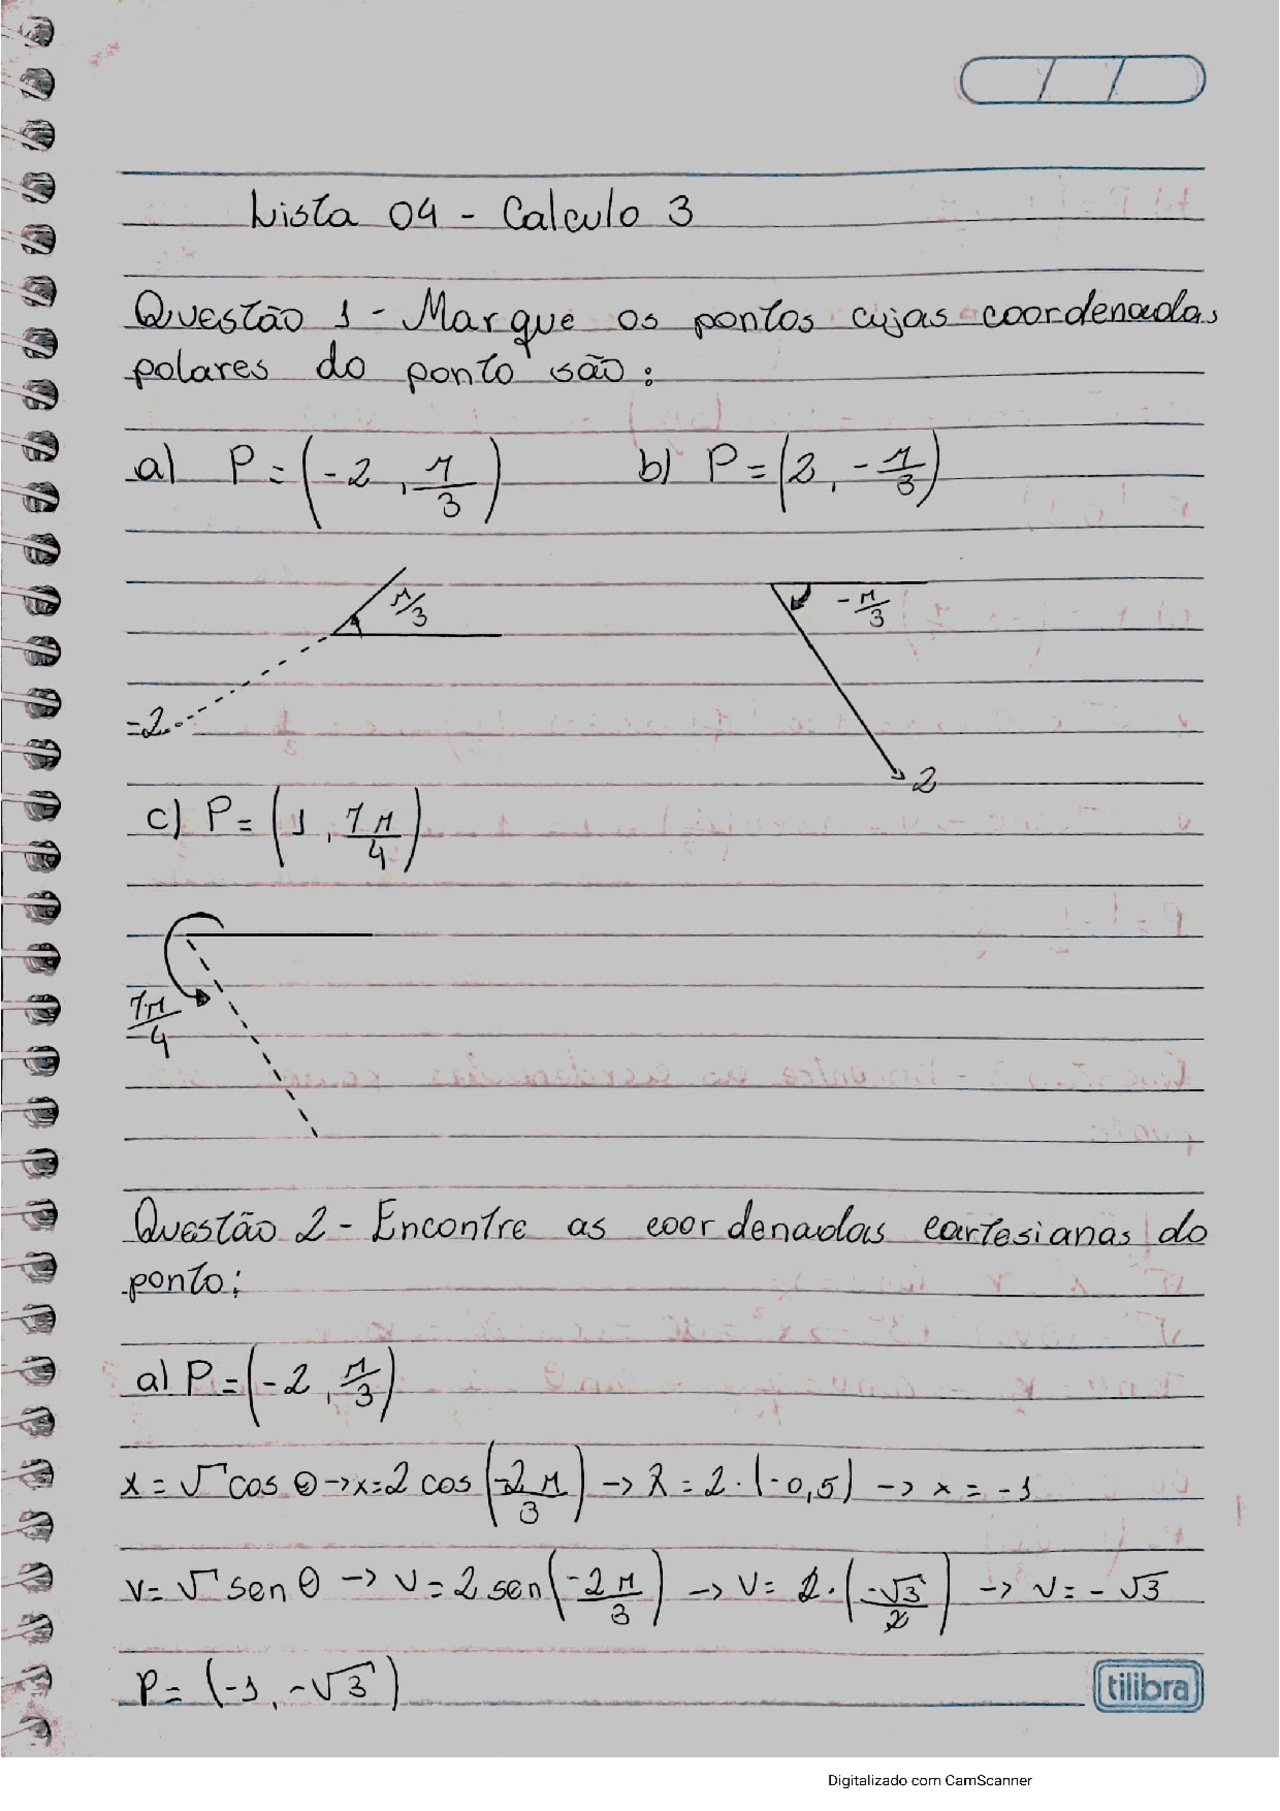 Lista 04 - Calculo 3
Questão 1 - Marque os pontos cujas coordenadas
polares do ponto são:
a) P = (-2, π/3) b) P = (2, -π/3)
π/3 -π/3
-2
2
c) P = (1, 7π/4)
7π/4
Questão 2 - Encontre as coordenadas cartesianas do
ponto:
a) P = (-2, π/3)
x = r cos θ -> x = 2 cos (-2π/3) -> x = 2 · (-0,5) -> x = -1
y = r sen θ -> y = 2 sen (-2π/3) -> y = 2 · (-√3/2) -> y = -√3
P = (-1, -√3)
tilibra
Digitalizado com CamScanner